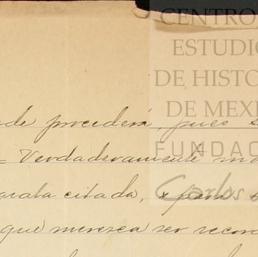 CENTRO
ESTUDIO
DE HISTO
DE MEXI
FUNDAC
de procederá, pues
= Verdaderamente
citada, para
Carlos
que merezca ser recor